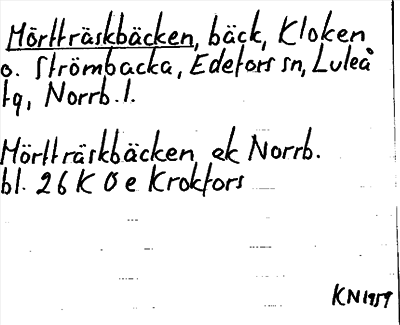 Mörtträskbäcken, bäck, Kloken
o. Strömbacka, Edefors sn, Luleå
tg, Norrb. l.
Mörtträskbäcken ek Norrb.
bl. 26 K 0 e Krokfors
KN 1959